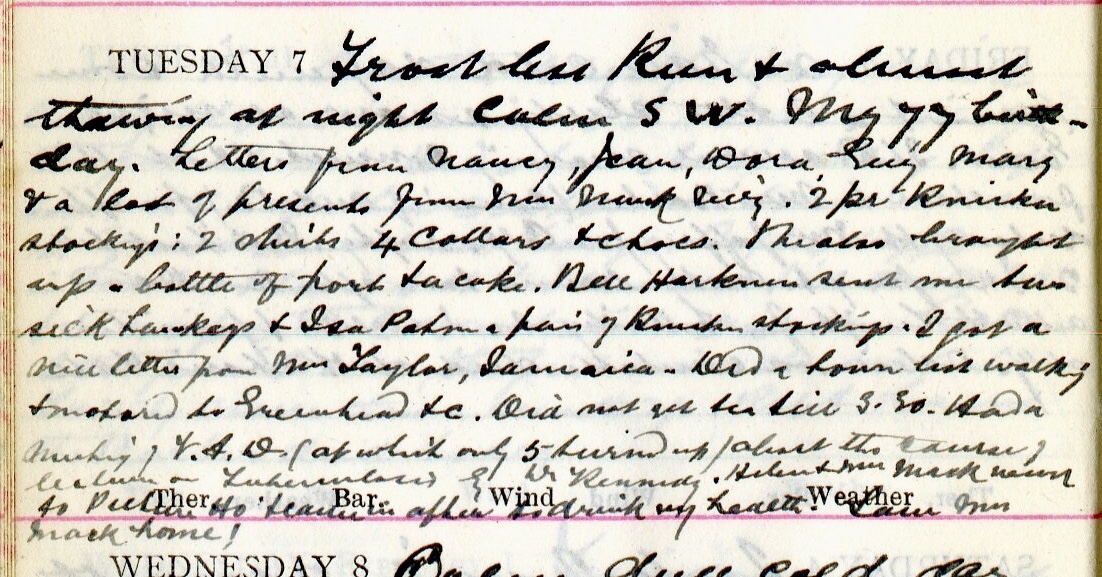 TUESDAY 7 Frost less Keen & almost
thawing at night Calm S W. My 77 birth-
day. Letters from Nancy, Jean, Dora, Mary
& a lot of presents from Mrs Mack. 2 pr Knicker
stockings; 2 shirts 4 Collars & choes. She also brought
up a bottle of port & a cake. Bell Harkness sent me two
silk hankeys & Isa a pair of Knicker stockings. I got a
nice letter from Mrs Taylor, Jamaica. Did a town list walking
& motored to Greenhead &c. Did not get tea till 5.30. Had a
meeting V.A.D. (at which only 5 turned up) about the course of
lectures on Tuberculosis by Dr Kennedy. Helen & Mrs Mack
Ther. Bar. Wind Weather
to after to drink my health. Mrs
Mack home!
WEDNESDAY 8 dull cold day